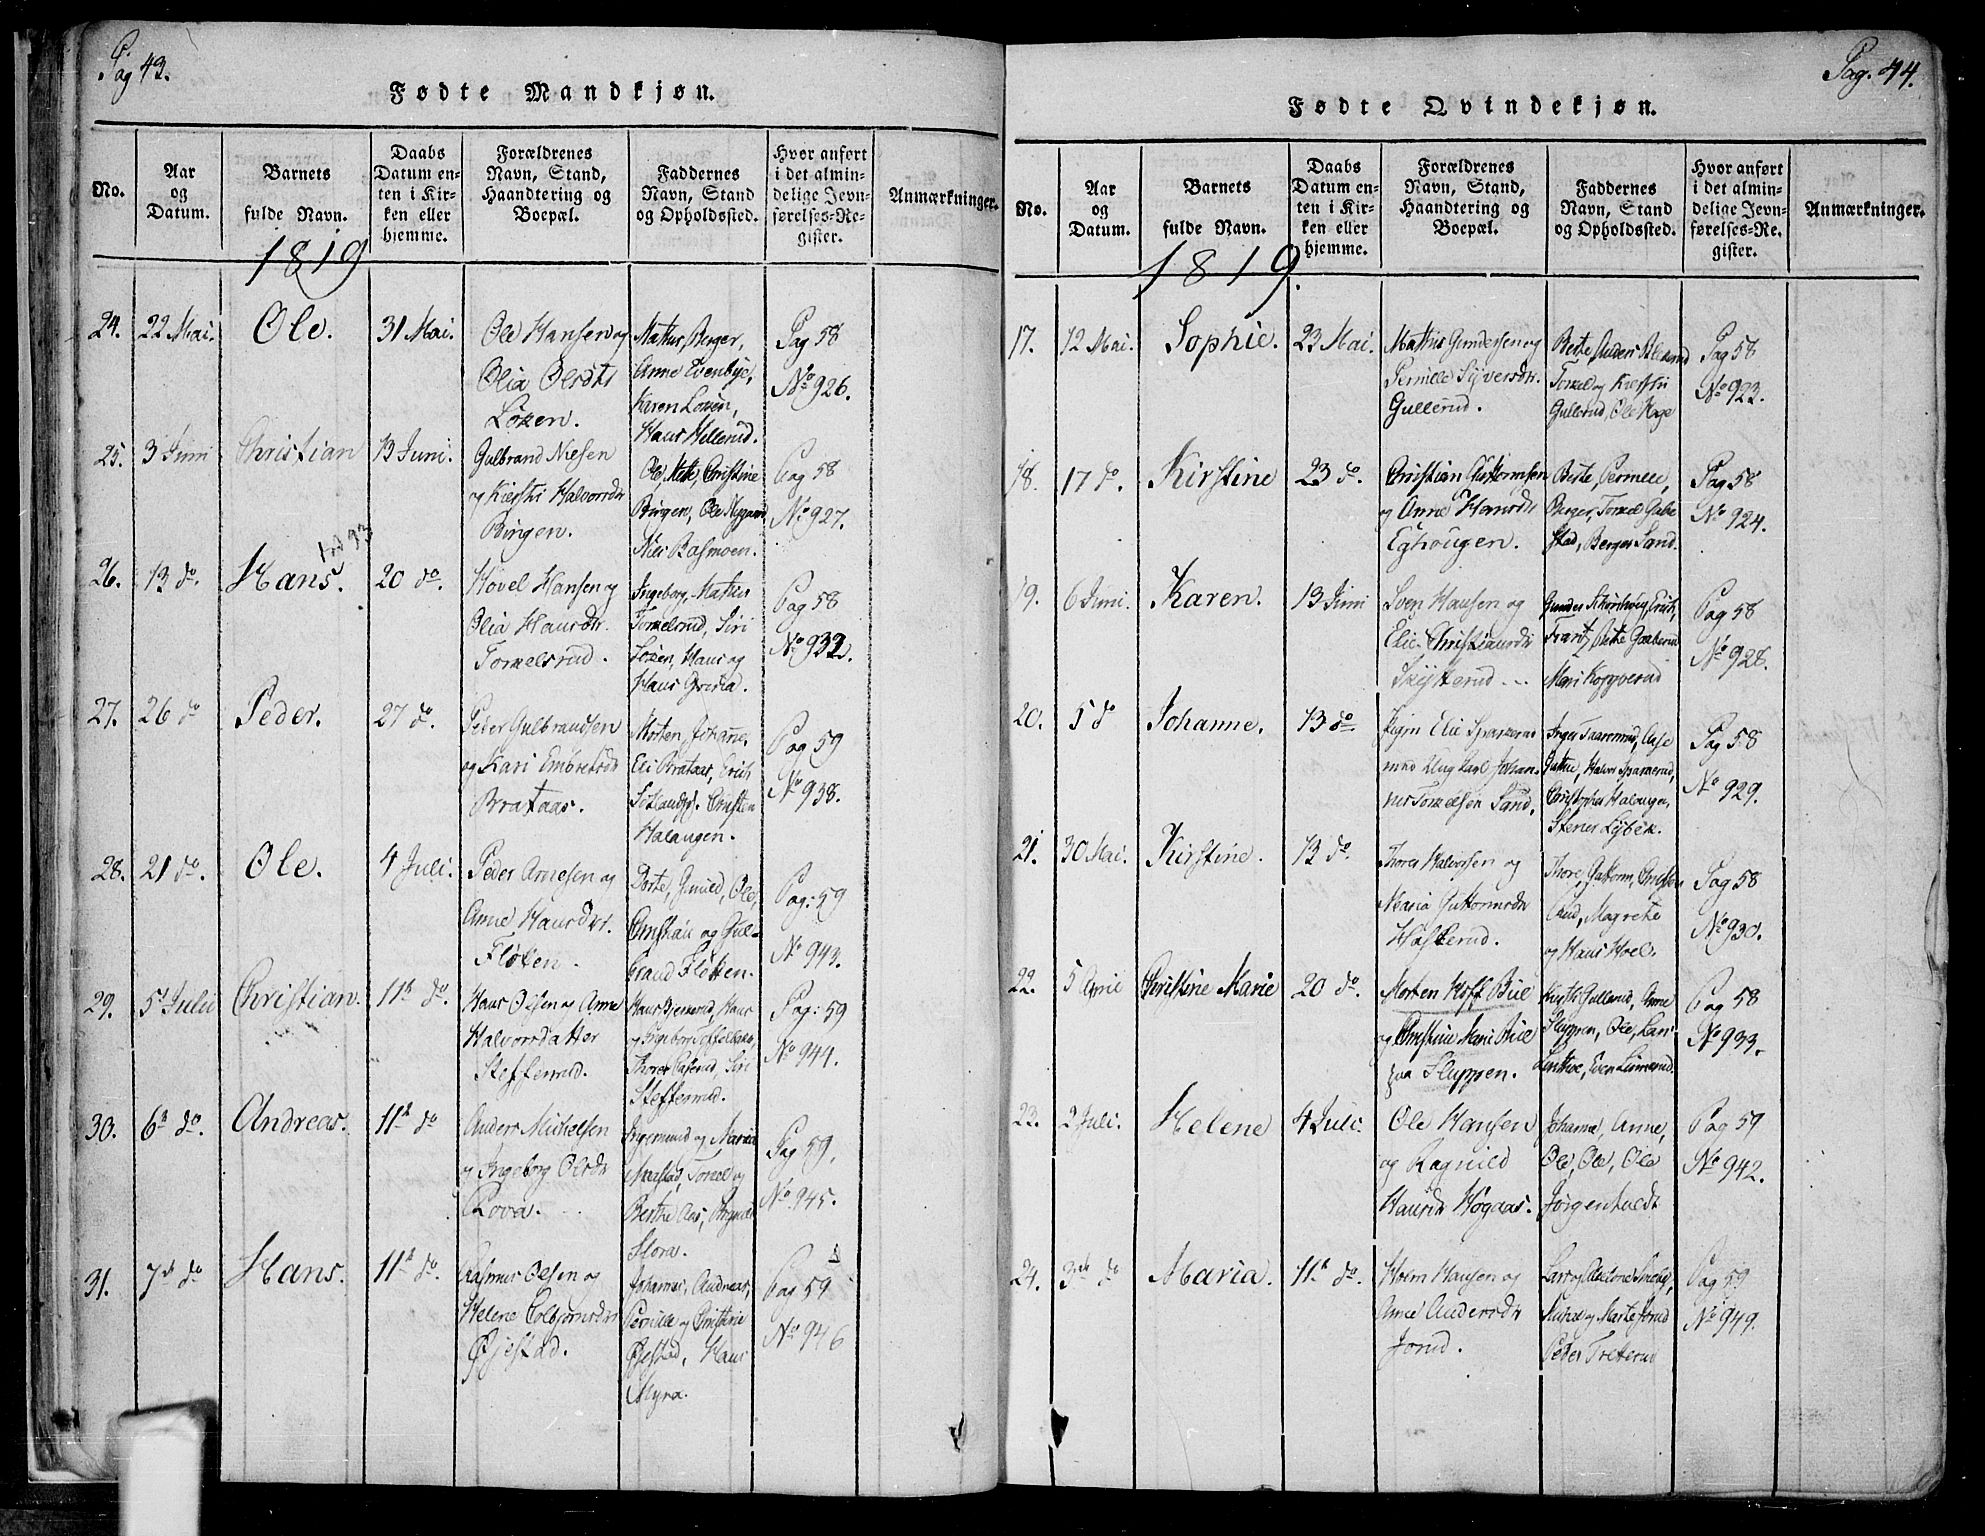 Pag 43.
Fødte Mandkjøn.
No.
Aar
og
Datum.
Barnets
fulde Navn.
Daabs
Datum en-
ten i Kir-
ken eller
hjemme.
Forældrenes
Navn, Stand,
Haandtering og
Boepæl.
Faddernes
Navn, Stand
og Opholdssted.
Hvor anført
i det almin-
delige Jevn-
førelses-Re-
gister.
Anmærkninger.
1819
24.
22 Mai.
Ole.
31 Mai.
Ole Hansen og
Olia Olsdtr
Løken.
Berger,
Anne Evenbye,
Karen Løken,
Hans Hillerud.
Pag 58
No 926.
25.
3 Juni
Christian
13 Juni.
Gulbrand Nielsen
og Kiersti Halvorsdr
Bingen.
Ole, Mette, Christine
Bingen, Ole Nygaard
Niels Basmoen.
Pag 58
No 927.
26.
13 do.
Hans.
20 do.
Hovel Hansen og
Olia Hansdr.
Torkelsrud.
Ingeborg, Mathis
Torkelsrud, Siri
Løken, Hans og
Hans Grosia.
Pag 58
No 932.
27.
26 do
Peder.
27 do.
Peder Gulbrandsen
og Kari Embretsdr
Brataas.
Morten, Johanne,
Eli Brataas, Erich
Christen
Halaugen.
Pag 59
No 938.
28.
21 do.
Ole.
4 Juli.
Peder Arnesen og
Anne Hansdtr.
Fløten.
Dorte, Gunild, Ole,
Christian og Gul-
brand Fløten.
Pag: 59
No 943.
29.
5t Julii
Christian.
11te do.
Hans Olsen og Anne
Halvorsdatter
Steffensrud.
Hans Bjerkerud, Hans
og Ingebor Toffelbakke,
Thore Siri
Steffensrud.
Pag: 59
No 944.
30.
6te do.
Andreas.
11te do
Anders Michelsen
og Ingeborg Olsdr
Rova.
Ingemund og Maria
Mærstad, Torkel og
Berthe Aas,
Flora.
Pag 59.
No 945.
31.
7de do
Hans.
11te do.
Rasmus Olsen og
Helene Colbjørnsdr
Øjestad.
Johannes, Andreas,
Pernille og Christine
Øjestad, Hans
Myra.
Pag 59
No 946
Pag. 44.
Fødte Qvindekjøn.
No.
Aar
og
Datum.
Barnets
fulde Navn.
Daabs
Datum en-
ten i Kir-
ken eller
hjemme.
Forældrenes
Navn, Stand,
Haandtering og
Boepæl.
Faddernes
Navn, Stand
og Opholdssted.
Hvor anført
i det almin-
delige Jevn-
førelses-Re-
gister.
Anmærkninger.
1819.
17.
12 Mai.
Sophie.
23 Mai.
Mathis Gundersen og
Pernille Syversdr.
Gullerud.
Berte, Anders
Torkel og Kiersti
Gullerud, Ole Hage
Pag 58
No 923.
18.
17 do.
Kirstine
23 do.
Christian Guttormsen
og Anne Hansdr
Eghougen.
Berte, Pernille,
Berger, Torkel Gube
stad, Berger Sand.
Pag 58
No 924.
19.
6 Juni.
Karen.
13 Juni
Sven Hansen og
Elie Christiansdr
Skytterud
Gunder Erich,
Frantz, Berthe
Mari Koppverud
Pag 58
No 928.
20.
5 do
Johanne.
13 do
Pigen Elie Sparkerud
med Ung Karl Johan-
nes Torkelsen Sand.
Inger Taarerud,
Halvor Sparkerud,
Christopher Halaugen,
Stener Lybek.
Pag 58
No 929.
21.
30 Mai.
Kirstine.
13 do.
Thores Halvorsen og
Maria Guttormsdr
Haslerud.
Thore, Guttorm, Christen
Rud, Magrete
og Hans Hoel.
Pag 58
No 930.
22.
5 April
Christine Marie
20 do.
Morten Hoff Bul
og Christine Marie Bul
paa Sluppen.
Kirsti Gullerud, Anne
Sluppen, Ole, Lars
Even Linnerud.
Pag 58
No 933.
23.
2 Juli.
Helene
4 Juli.
Ole Hansen
og Ragnild
Hansdr Høgaas.
Johanne, Anne,
Ole, Ole, Ole
Jørgenholdt
Pag 59
No 942.
24.
3de do
Maria.
11te do.
Holm Hansen og
Anne Andersdr
Jorud.
Lars og
og Marte Jorud
Peder Treterud
Pag 59
No 949.